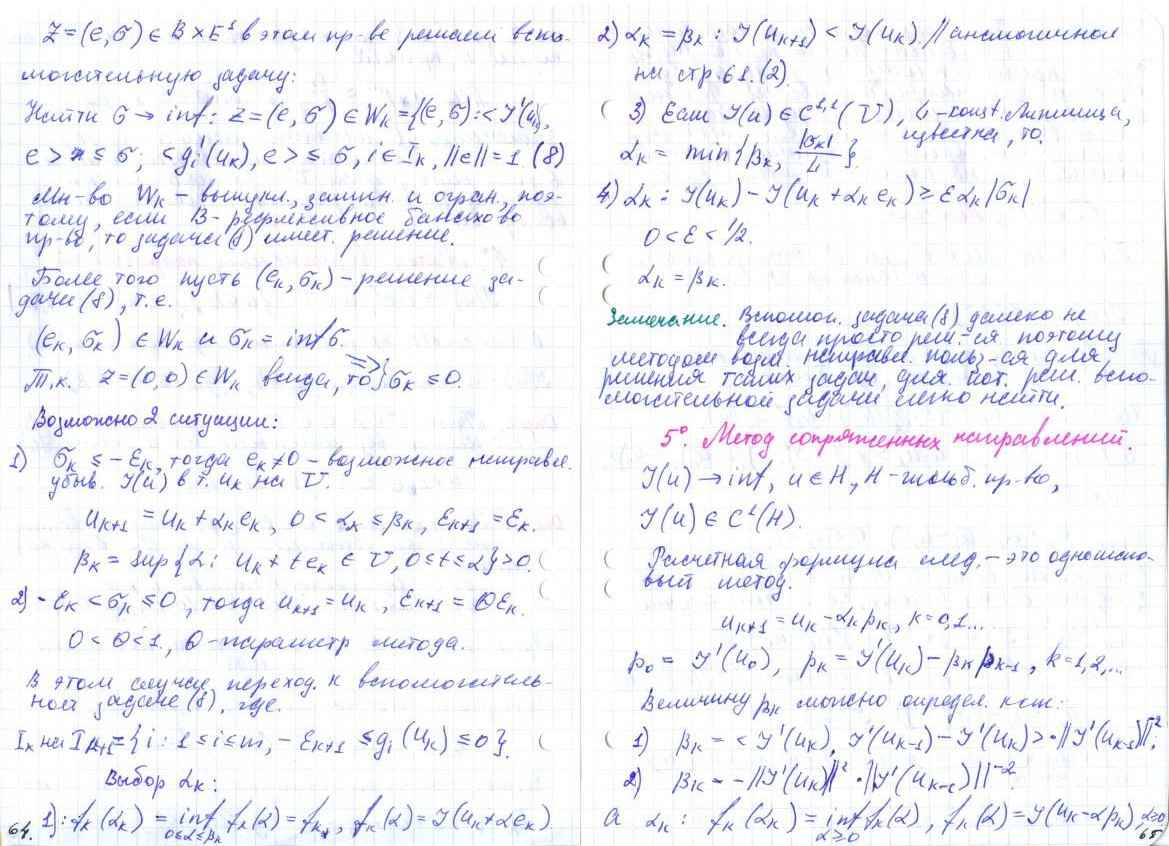 Z=(e,σ)∈B×E¹ в этом пр-ве решаем вспо-
могательную задачу:
Найти σ→inf: z=(e,σ)∈W_k={(e,σ):<J'(u_k),
e>≤σ; <g_i'(u_k),e>≤σ, i∈I_k, ||e||=1 (8)
Мн-во W_k – выпукл., замкн. и огран., поэ-
тому, если B-рефлексивное банахово
пр-во, то задача (8) имеет. решение.
Более того пусть (e_k,σ_k) – решение за-
дачи (8), т.е.
(e_k,σ_k)∈W_k и σ_k=inf σ.
Т.к. z=(0,0)∈W_k всегда, то ⇒} σ_k≤0.
Возможно 2 ситуации:
1) σ_k≤-ε_k, тогда e_k≠0 – возможное направл.
убыв. J(u) в т. u_k на U.
u_{k+1}=u_k+α_k e_k, 0<α_k≤β_k, ε_{k+1}=ε_k.
β_k=sup{α: u_k+te_k∈U, 0≤t≤α}>0.
2) -ε_k<σ_k≤0, тогда u_{k+1}=u_k, ε_{k+1}=θε_k.
0<θ<1, θ-параметр метода.
В этом случае переход. к вспомогатель-
ной задаче (8), где.
I_k на I_{k+1}={i: 1≤i≤m, -ε_{k+1}≤g_i(u_k)≤0}.
Выбор α_k:
1): f_k(α_k)=inf_{0≤α≤β_k} f_k(α)=f_{k*}, f_k(α)=J(u_k+αe_k)
64.
2) α_k=β_k: J(u_{k+1})<J(u_k) // аналогичной
на стр. 61. (2)
3) Если J(u)∈C^{1,1}(U), L-конст. Липшица,
известна, то.
α_k=min{β_k, |σ_k|/L}.
4) α_k: J(u_k)-J(u_k+α_k e_k)≥εα_k|σ_k|
0<ε<1/2.
α_k=β_k.
Замечание. Вспомог. задача (8) далеко не
всегда просто реш.-ся поэтому
методом возм. направл. польз-ся для
решения таких задач, для. кот. реш. вспо-
могательной задачи легко найти.
5°. Метод сопряженных направлений.
J(u)→inf, u∈H, H-гильб. пр-во,
J(u)∈C¹(H).
Расчетная формула след. – это одношаго-
вый метод.
u_{k+1}=u_k-α_k p_k, k=0,1...
p_0=J'(u_0), p_k=J'(u_k)-β_k p_{k-1}, k=1,2,...
Величину β_k можно определ. как:
1) β_k=<J'(u_k), J'(u_{k-1})-J'(u_k)>·||J'(u_{k-1})||^{-2}.
2) β_k=-||J'(u_k)||²·||J'(u_{k-1})||^{-2}
а α_k: f_k(α_k)=inf_{α≥0} f_k(α), f_k(α)=J(u_k-αp_k), α≥0
65